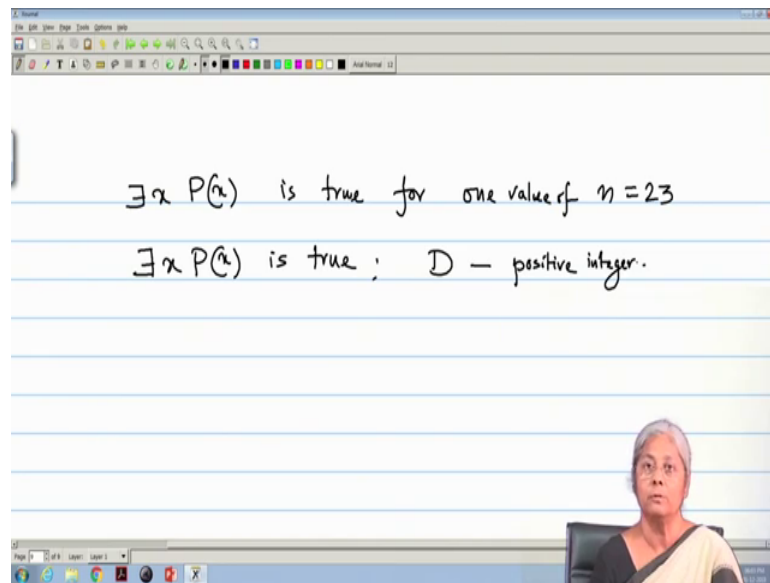 Journal
File Edit View Page Tools Options Help
Arial Normal 12
∃x P(x) is true for one value of n = 23
∃x P(x) is true ; D — positive integer.
Page of 9 Layer: Layer 1